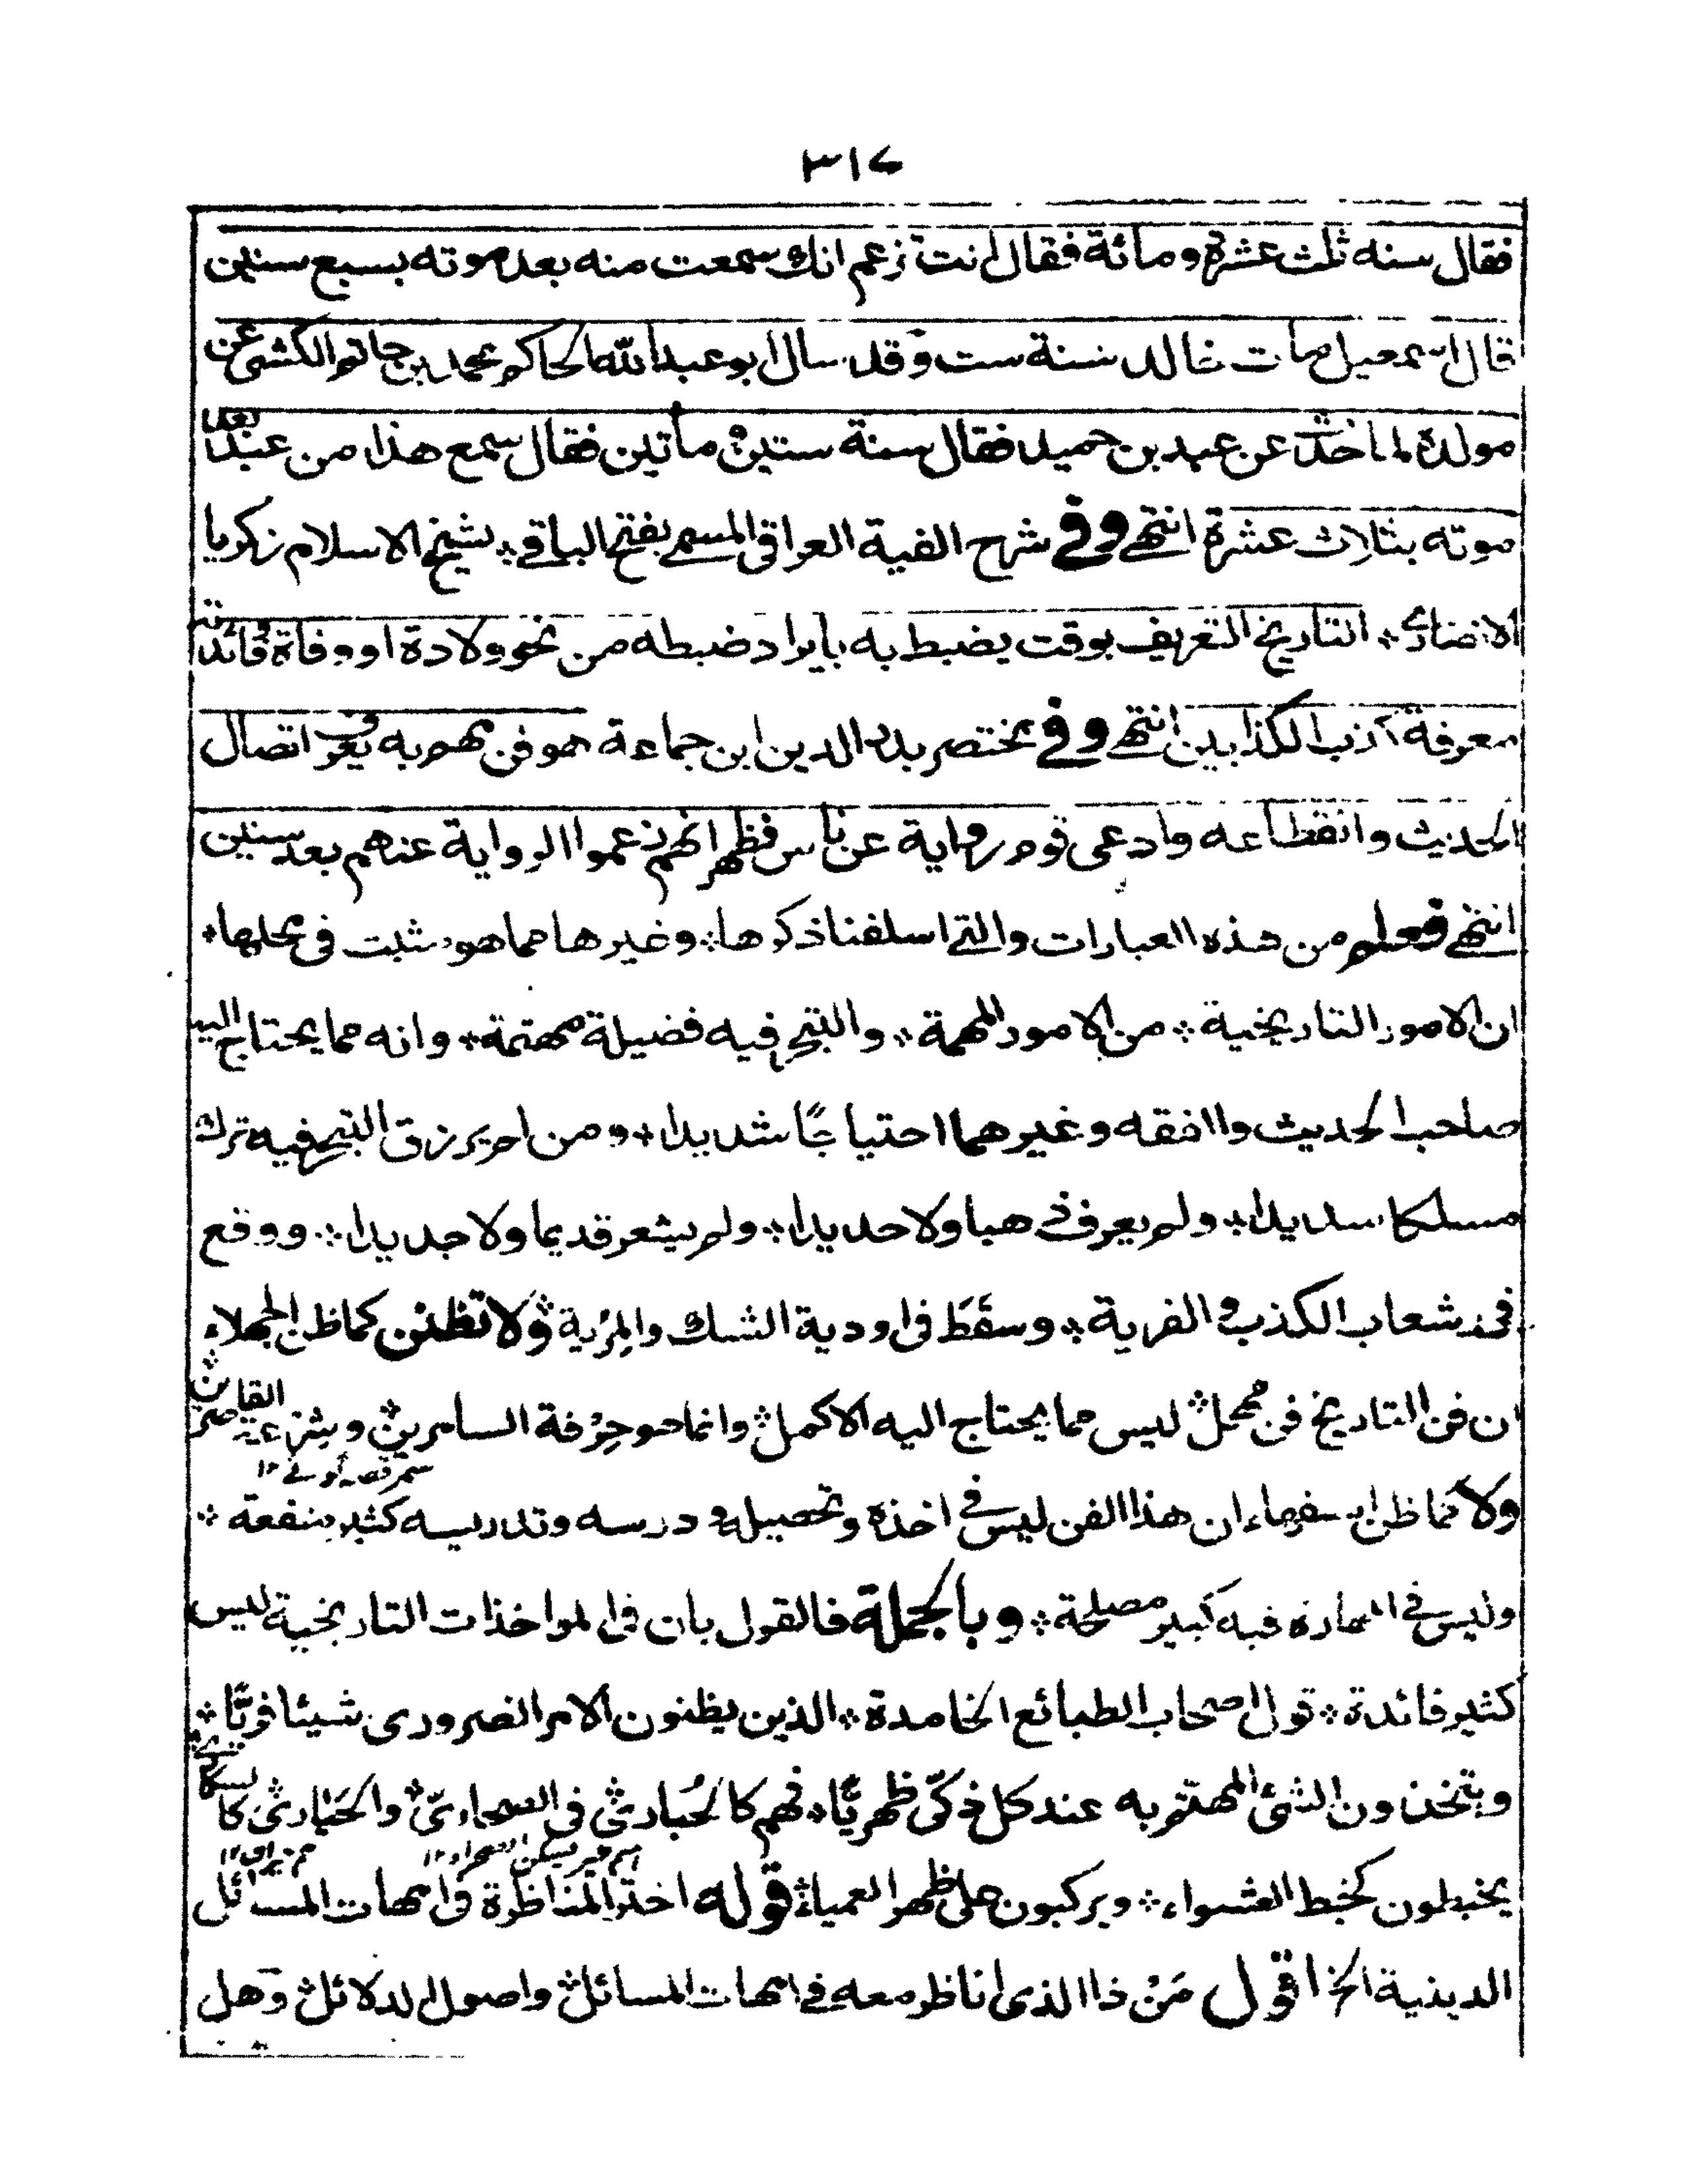 ٣١٧
فقال سنه ثلث عشرة ومائة فقال انت تزعم انك سمعت منه بعد موته بسبع سنين
قال اسمعيل مات خالد سنة ست وقد سال ابو عبد الله الحاكم محمد بن حاتم الكشى عن
مولده لما حدث عن عبد بن حميد فقال سنة ستين ومأتين فقال سمع هذا من عبد بعد
موته بثلاث عشرة انتهى وفي شرح الفية العراقى المسمى بفتح الباقى؞ لشيخ الاسلام زكريا
الانصارى؞ التاريخ التعريف بوقت يضبط به بايراد ضبطه من نحو ولادة او وفاة وفائدته
معرفة كذب الكذابين انتهى وفي مختصر بدر الدين ابن جماعة هو فن مهم به يعرف اتصال
الحديث وانقطاعه وادعى قوم رواية عن ناس فظهر انهم زعموا الرواية عنهم بعد سنين
انتهى فعلم من هذه العبارات والتى اسلفنا ذكرها؞ وغيرها مما هو مثبت فى محلها؞
ان الامور التاريخية؞ من الامور المهمة؞ والتبحر فيه فضيلة مهتمة؞ وانه مما يحتاج اليه
صاحب الحديث والفقه وغيرهما احتياجًا شديدا؞ ومن لم يرزق التبحر فيه ترك
مسلكا سديدا؞ ولم يعرف ذهبا ولا حديدا؞ ولم يشعر قديما ولا جديدا؞ ووقع
فى شعاب الكذب والفرية؞ وسقَط فى اودية الشك والمِرْية؞ ولا تظنن كما ظن الجهلاء
ان فن التاريخ فن مهمل؞ ليس مما يحتاج اليه الاكمل؞ وانما هو حِرْفة السامرين؞ وشرعة القاصرين؞
سمر قصه گوئى ١٢
ولا كما ظن السفهاء ان هذا الفن ليس فى اخذه وتحصيله ودرسه وتدريسه كثير منفعة؞
وليس فى المهارة فيه كبير مصلحة؞ وبالجملة فالقول بان فى المواخذات التاريخية ليس
كثير فائدة؞ قول اصحاب الطبائع الخامدة؞ الذين يظنون الامر الضرورى شيئا فريًّا؞
ويتخذون الشئ المهتم به عند كل ذكىّ ظهريًّا؞ فهم كالحُبارى؞ فى الصحارىّ؞ والحَيارى؞ كالسكارى؞
يخبطون كخبط العشواء؞ ويركبون على ظهر العمياء؞ قوله اختر المناظرة فى امهات المسائل
الدينية الخ اقول مَنْ ذا الذى اناظر معه فى امهات المسائل؞ واصول الدلائل؞ وهل